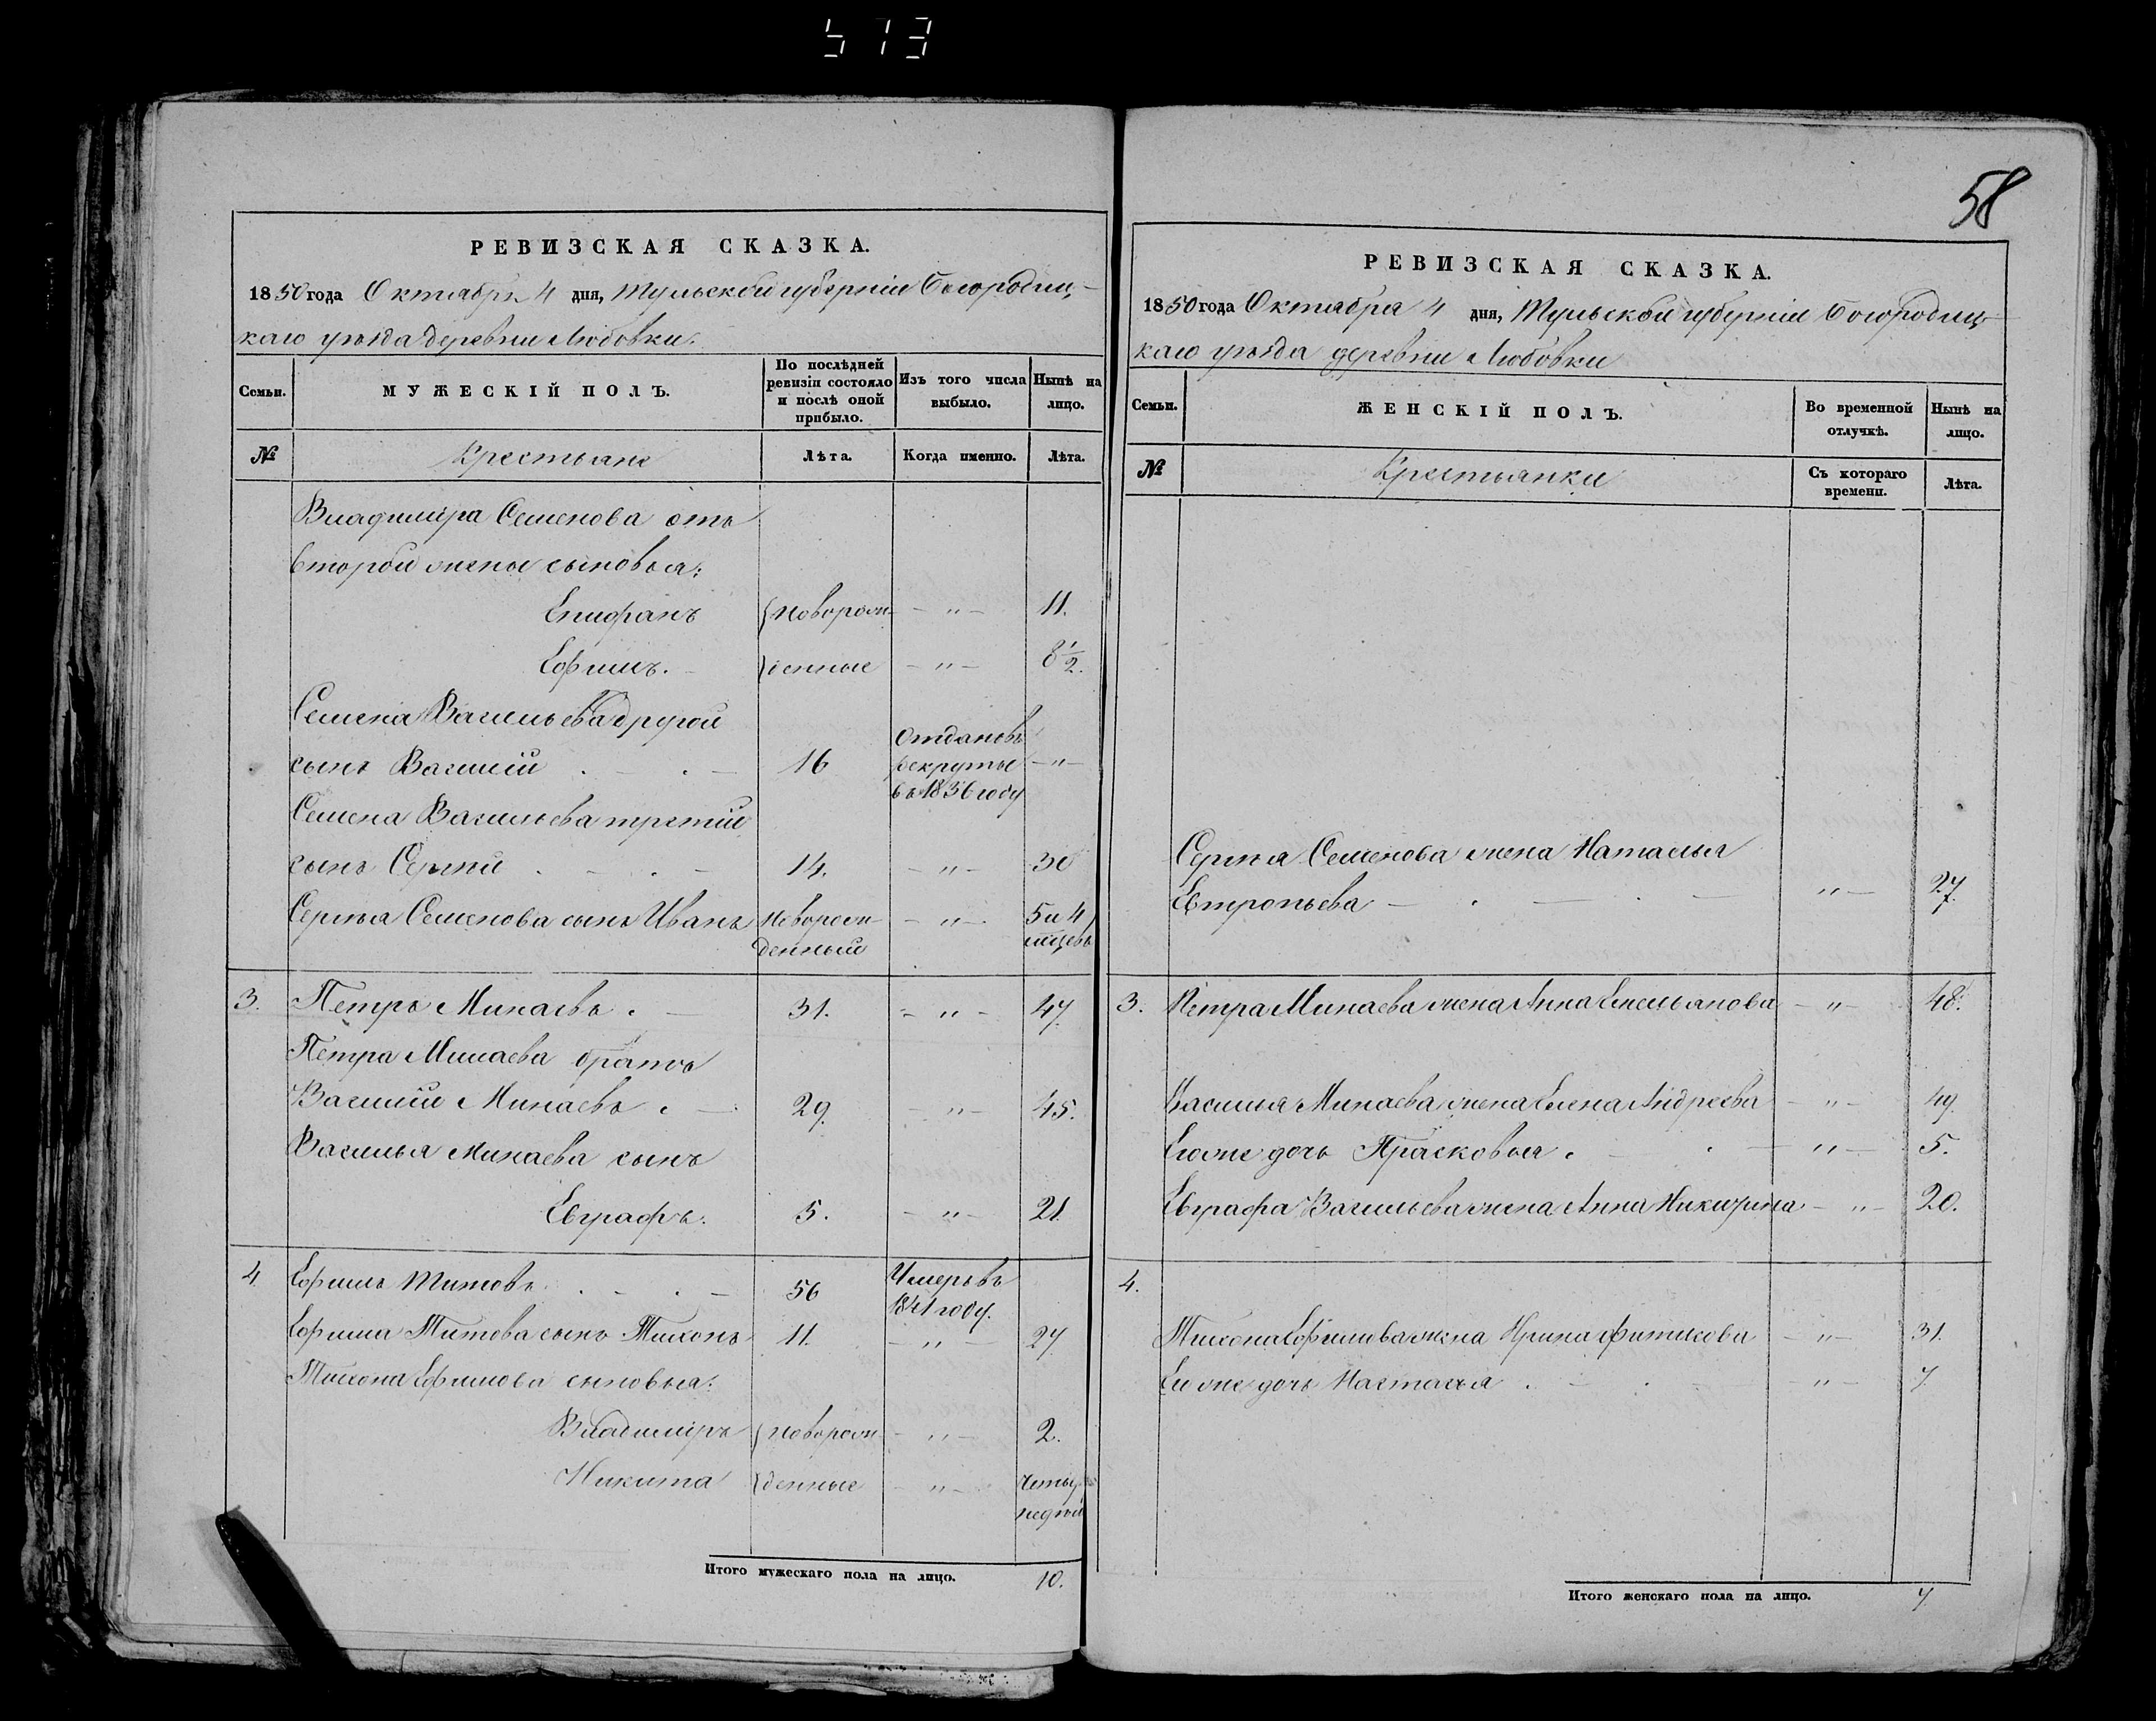 573
РЕВИЗСКАЯ СКАЗКА.
1850 года Октября 4 дня, Тульской губерніи Богородиц-
каго уѣзда деревни Любовки.
Семьи.
МУЖЕСКІЙ ПОЛЪ.
По послѣдней ревизіи состояло и послѣ оной прибыло.
Изъ того числа выбыло.
Нынѣ на лицо.
№
Крестьяне
Лѣта.
Когда именно.
Лѣта.
Владиміра Семенова отъ
второй жены сыновья:
Епифанъ {новорож- — " — 11.
Ефимъ. {денные — " — 8 1/2.
Семена Васильева другой
сынъ Василій 16 Отданъ въ рекруты въ 1836 году — " —
Семена Васильева третій
сынъ Сергѣй 14. — " — 30
Сергѣя Семенова сынъ Иванъ новорож- — " — 5 и 4
денный мѣсцевъ
3. Петръ Минаевъ. 31. — " — 47.
Петра Минаева братъ
Василій Минаевъ. 29. — " — 45.
Василья Минаева сынъ
Евграфъ. 5. — " — 21.
4. Ефимъ Титовъ. 56 Умеръ въ 1841 году.
Ефима Титова сынъ Тихонъ 11. — " — 27
Тихона Ефимова сыновья:
Владиміръ {новорож- — " — 2.
Никита {денные — " —
Итого мужескаго пола на лицо. 10.
58
РЕВИЗСКАЯ СКАЗКА.
1850 года Октября 4 дня, Тульской губерніи Богородиц-
каго уѣзда деревни Любовки
Семьи.
ЖЕНСКІЙ ПОЛЪ.
Во временной отлучкѣ.
Нынѣ на лицо.
№
Крестьянки
Съ котораго времени.
Лѣта.
Сергѣя Семенова жена Наталья
Евтропьева — " — 27.
3. Петра Минаева жена Анна Емельянова — " — 48.
Василья Минаева жена Елена Андреева — " — 49.
Его же дочь Прасковья. — " — 5.
Евграфа Васильева жена Анна Никитина — " — 20.
4.
Тихона Ефимова жена Ирина — " — 31.
Ея же дочь Настасья — " — 7.
Итого женскаго пола на лицо. 7